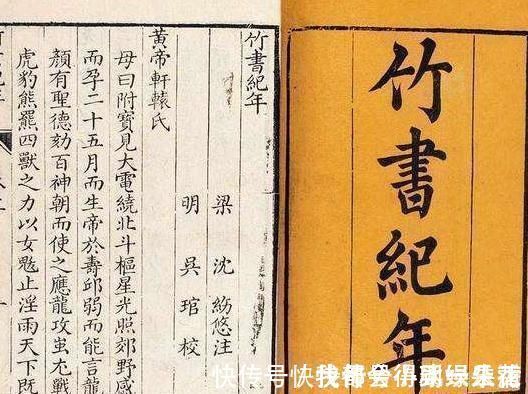 竹書紀年
梁 沈 約 悠注
明 吳 琯 校
黄帝軒轅氏
母曰附寶見大電繞北斗樞星光照郊野感
而孕二十五月而生帝於壽邱弱而能言龍
顏有聖德劾百神朝而使之應龍攻蚩尤戰
虎豹熊羆四獸之力以女魃止淫雨天下既
竹書紀年
快传号